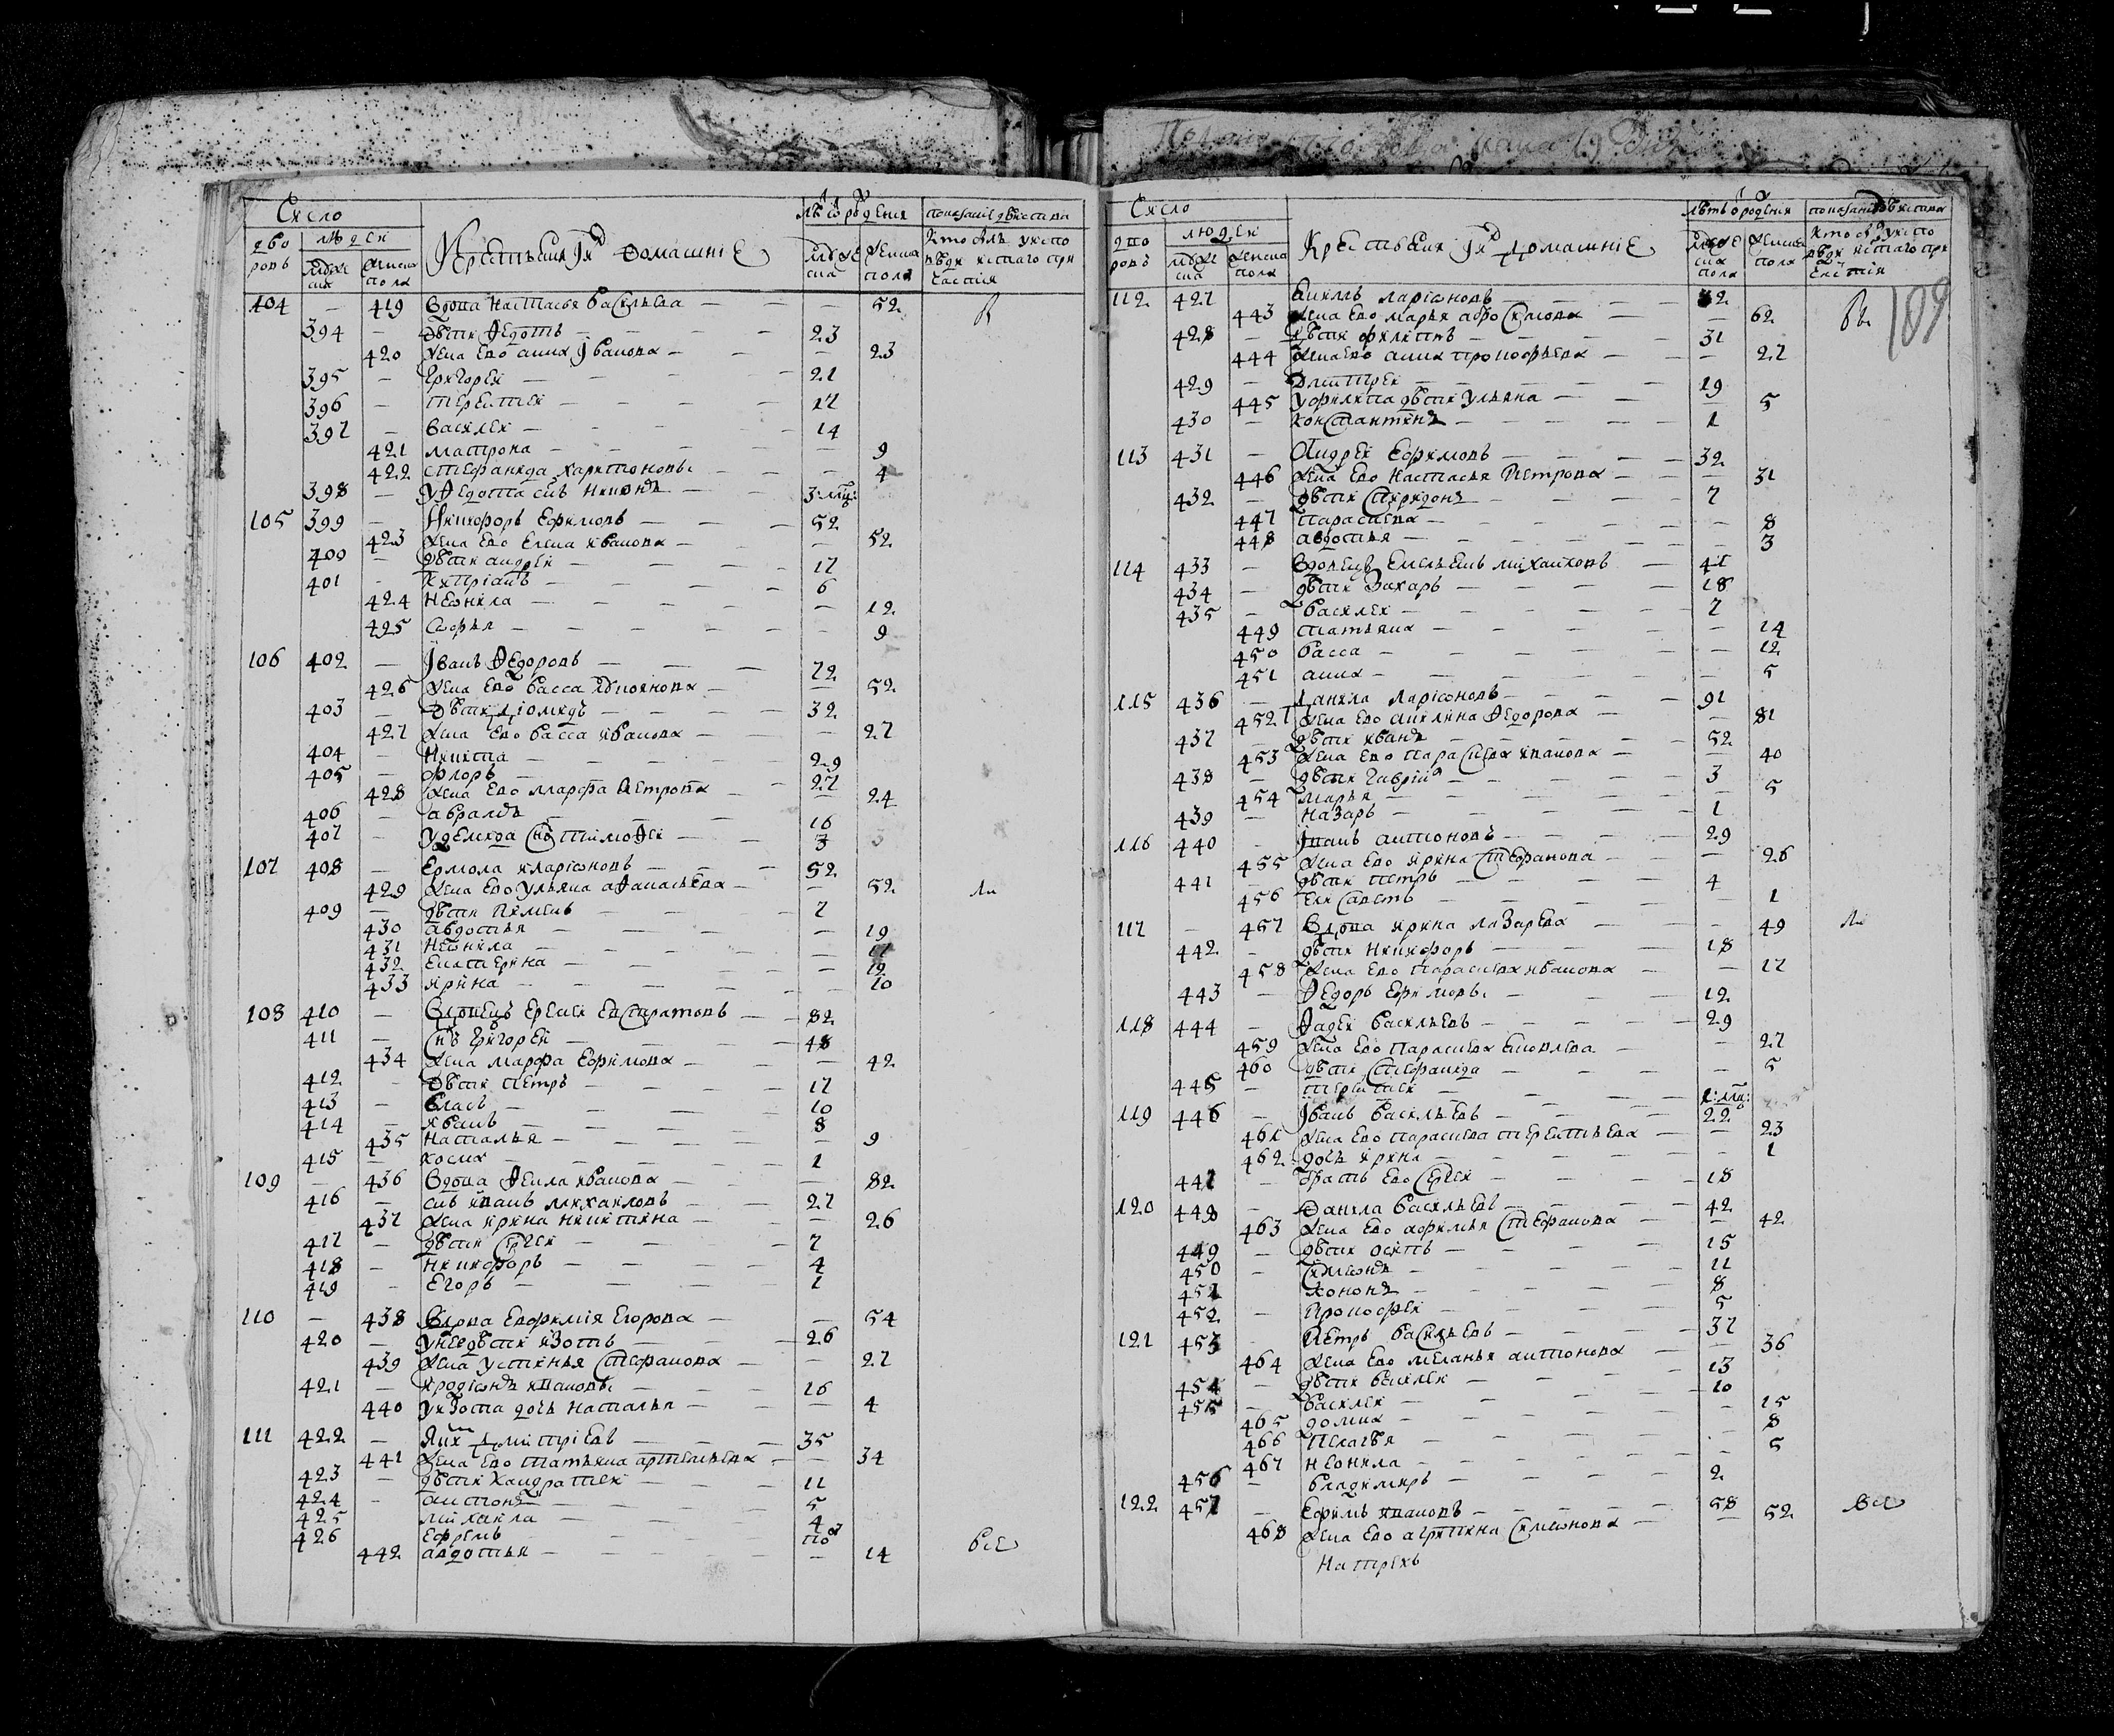 Число
дво
ровъ
людеи
мужес
ка
женска
пола
Крестьяня Iих домашніе
лѣто рождения
мужес
ка
женска
пола
показание действа
кто былъ у испо
вѣди и святаго при
частия
104 – 419 вдова Настасья Васильева – 52
394 – дѣти Ѳедотъ – 23
420 жена ево анна Iванова – 23
395 – григореи – 21
396 – терентеи – 17
397 – василеи – 14
421 матрона – 9
422 стефанида харитоновы – 4
398 – у Ѳедота снъ никонъ – 3:мц:
105 399 – Никифоръ Ефимовъ – 52
423 жена ево Елена иванова – 52
400 – дѣти андреи – 17
401 – киприанъ – 6
424 неѡнила – 12
425 софья – 9
106 402 – Iванъ Ѳедоровъ – 72
426 жена ево васса – 52
403 – дѣти диомидъ – 32
427 жена ево васса иванова – 27
404 – Никита – 29
405 – флоръ – 27
428 жена ево марфа Петрова – 24
406 – авраамъ – 16
407 – у демида снъ тимоѲеи – 3
107 408 – Ермола илариѡновъ – 52
429 жена ево ульяна аѲанасьева – 52
409 – дѣти Пименъ – 7
430 авдотья – 19
431 неѡнила –
432 екатерина – 12
433 ирина – 10
108 410 – вдовецъ Еремеи Евстратовъ – 82
411 – снъ григореи – 48
434 жена марфа Ефимова – 42
412 – дѣти петръ – 17
413 – власъ – 10
414 – иванъ – 8
435 наталья – 9
415 – косма – 1
109 – 436 вдова Ѳекла иванова – 82
416 – снъ иванъ михаиловъ – 27
437 жена ирина никитина – 26
417 – дѣти сергеи – 7
418 – никифоръ – 4
419 – Егоръ – 1
110 – 438 вдова Евфимия Егорова – 54
420 – у нее дѣти изотъ – 26
439 жена устинья стефанова – 27
421 – иродиѡнъ ивановы – 16
440 у изота дочь наталья – 4
111 422 – дмитриевъ – 35
441 жена ево татьяна артемьева – 34
423 – дѣти кандратеи – 11
424 – антонъ – 5
425 – михаила – 4
426 Ефремъ –
442 авдотья – 14 все
Число
дво
ровъ
людеи
мужес
ка
женска
пола
Крестьяня Iих домашніе
лѣтъ рождения
мужес
ка
пола
женска
пола
показание действа
кто былъ у испо
вѣди и святаго при
частия
109
112 427 лариѡновъ –
443 жена ево марья – 62
428 – дѣти филипъ – 31
444 жена ево анна прокофьева – 27
429 – дмитреи – 19
445 у филипа дѣти ульяна – 5
430 – константинъ – 1
113 431 – Андреи Ефимовъ – 32
446 жена ево настасья Петрова – 31
432 – дѣти спиридонъ – 7
447 параскева – 8
448 авдотья – 3
114 433 – вдовецъ Емельянъ михаиловъ – 41
434 – дѣти Захаръ – 18
435 – василеи – 7
449 татьяна – 14
450 васса – 12
451 анна – 5
115 436 – данила лариѡновъ – 91
452 жена ево акилина Ѳедорова – 81
437 – дѣти иванъ – 52
453 жена ево параскева иванова – 40
438 – дѣти гаврила – 3
454 марья – 5
439 – назаръ – 1
116 440 – Iванъ антоновъ – 29
455 жена ево ирина стефанова – 26
441 – дѣти петръ – 4
456 елисаветъ – 1
117 – 457 вдова ирина лазарева – 49
442 – дѣти никифоръ – 18
458 жена ево параскева иванова – 17
443 – Ѳедоръ Ефимовы – 12
118 444 – Ѳадеи васильевъ – 29
459 жена ево параскева – 27
460 дѣти стефанида – 5
445 – терентеи – 1:мц:
119 446 – Iванъ васильевъ – 22
461 жена ево параскева терентьева – 23
462 дочь ирина – 1
447 – братъ ево сергеи – 18
120 448 – данила васильевъ – 42
463 жена ево афимья стефанова – 42
449 – дѣти осипъ – 15
450 – симеѡнъ – 11
451 – кононъ – 8
452 – прокофеи – 5
121 453 – Петръ васильевъ – 37
464 жена ево меланья антонова – 36
454 – дѣти василеи – 13
455 – василеи – 10
465 домна – 15
466 пелагѣя – 8
467 неонила – 5
456 – владимиръ – 2
122 457 – Ефимъ ивановъ – 58
468 жена ево агрипина симеѡнова – 52 все
На трехъ